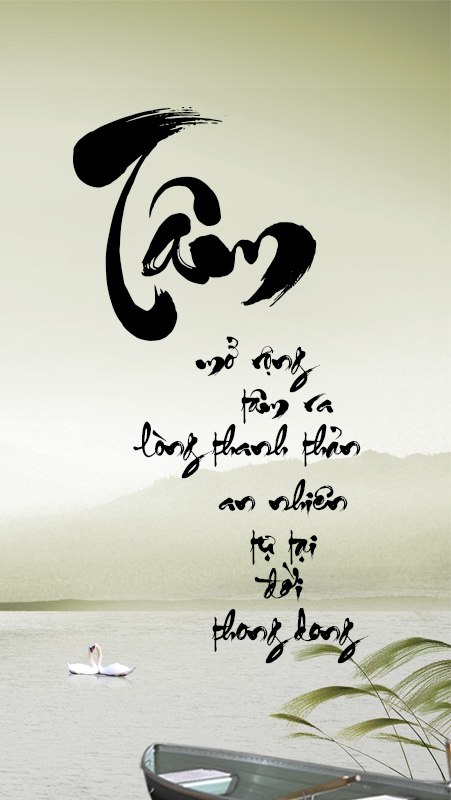 Tâm
mở rộng
tâm ra
lòng thanh thản
an nhiên
tự tại
đời
phong dong